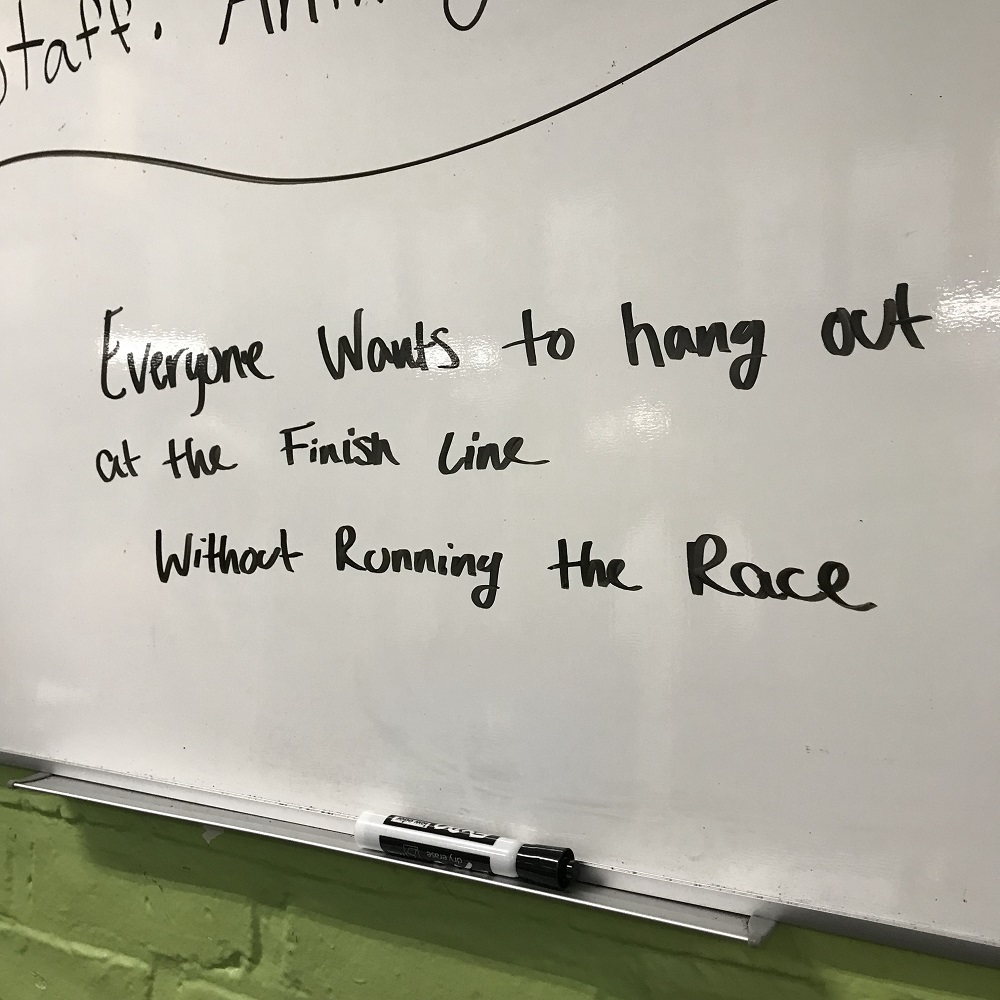 staff.
Everyone Wants to hang out
at the Finish Line
Without Running the Race
dry erase